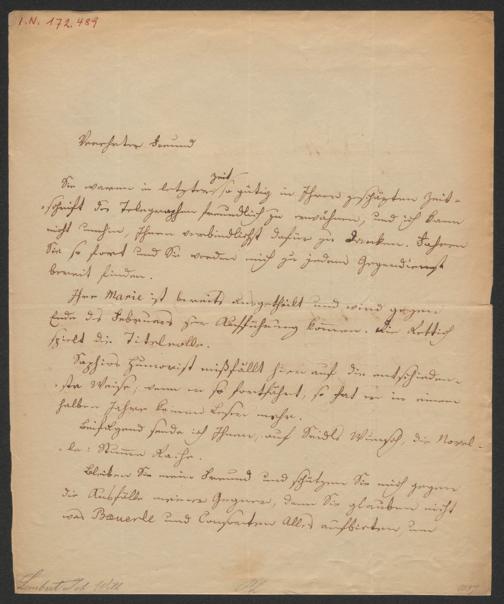 I.N. 172.489
Verehrter Freund
Sie waren in letzter Zeit so gütig in Ihrer geschäzten Zeit-
schrift des Telegraphen freundlich zu erwähnen, und ich kann
nicht umhin, Ihnen verbindlichst dafür zu danken. Fahren
Sie so fort und Sie werden mich zu jedem Gegendienst
bereit finden.
Ihre Marie ist bereits ausgetheilt und wird gegen
Ende des Februars zur Aufführung kommen. Die Rettich
spielt die Titelrolle.
Saphirs Humorist mißfällt hier auf die entschieden-
ste Weise, wenn er so fortfährt, so hat er in einem
halben Jahre keinen Leser mehr.
Beifolgend sende ich Ihnen, auf Seidls Wunsch, die Novel-
le: Stumme Rache.
Bleiben Sie mein Freund und schützen Sie mich gegen
die Ausfälle meiner Gegner, denn Sie glauben nicht
was Bäuerle und Consorten Alles aufbieten, um